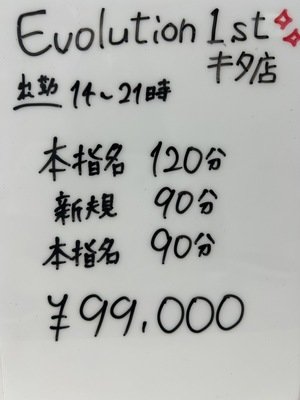 Evolution 1st
キタ店
出勤 14~21時
本指名 120分
新規 90分
本指名 90分
¥99.000